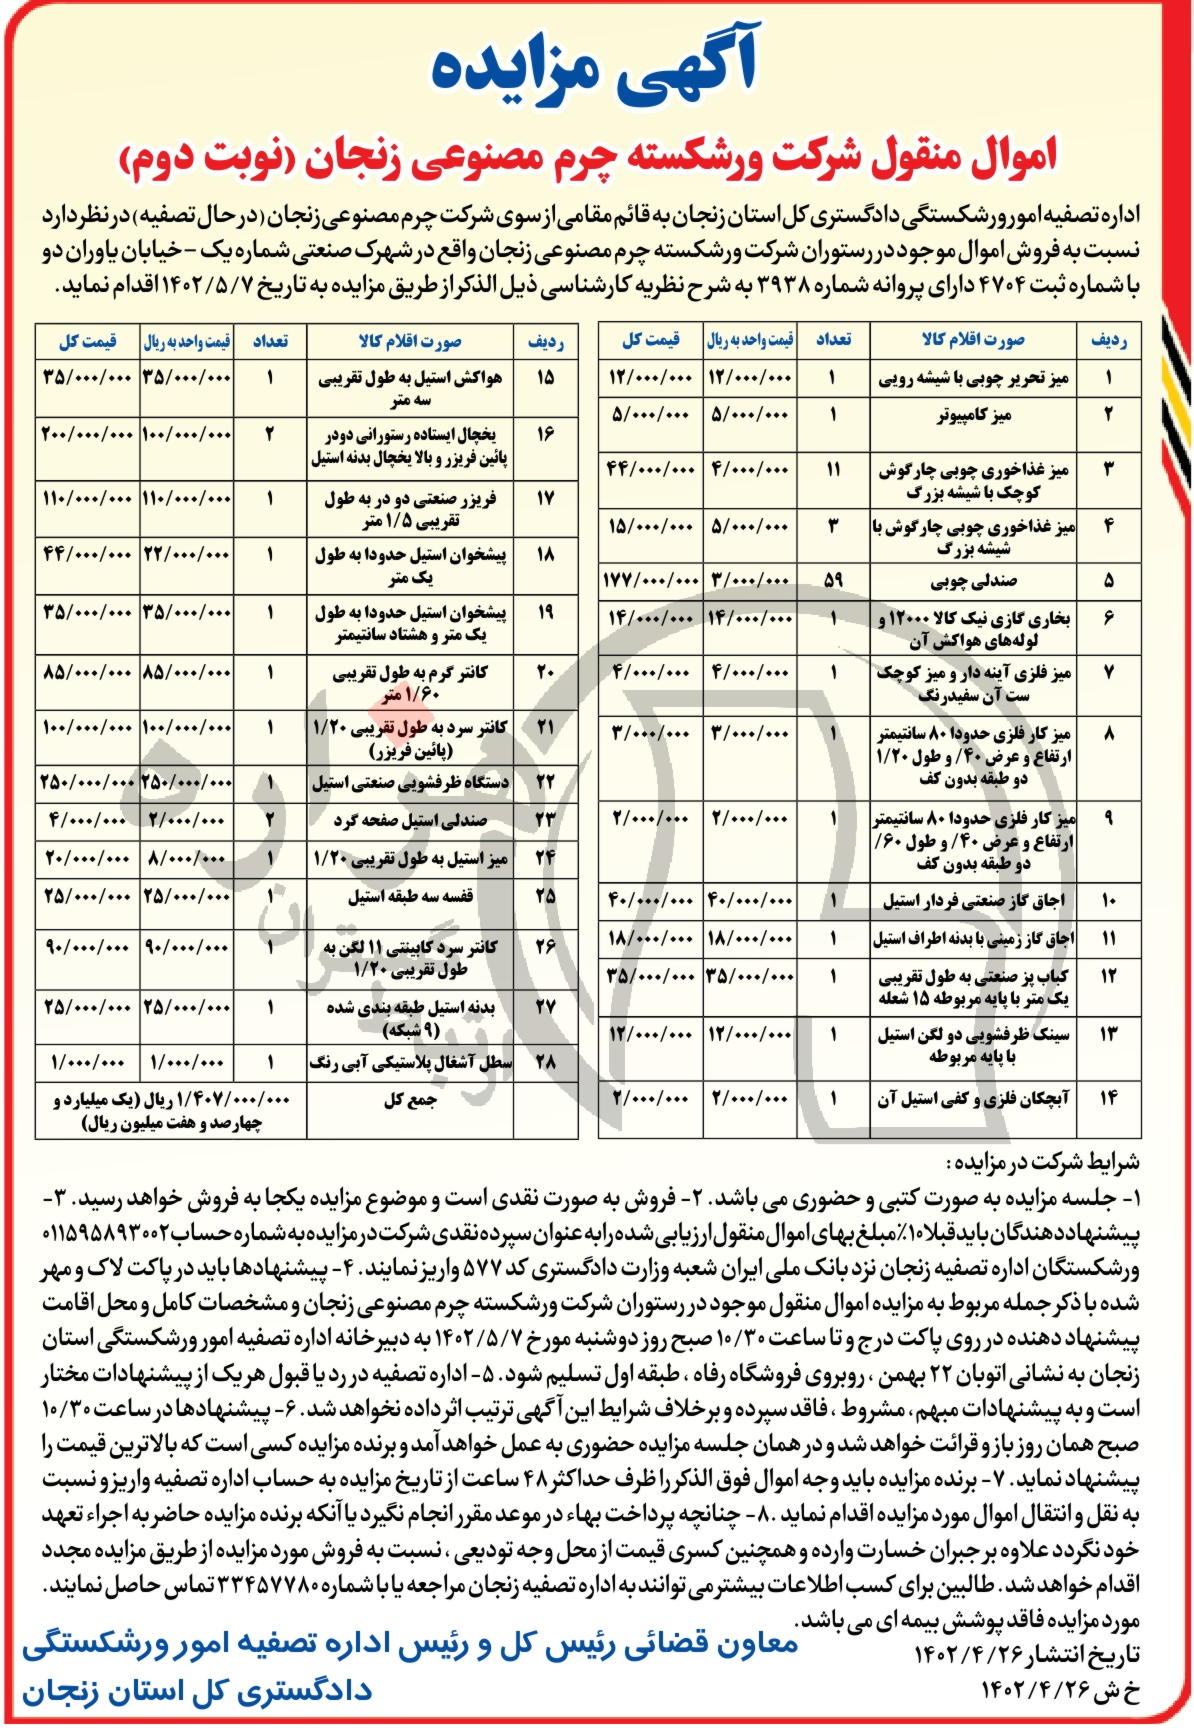 آگهی مزایده
اموال منقول شرکت ورشکسته چرم مصنوعی زنجان (نوبت دوم)
اداره تصفیه امور ورشکستگی دادگستری کل استان زنجان به قائم مقامی از سوی شرکت چرم مصنوعی زنجان (در حال تصفیه) در نظر دارد
نسبت به فروش اموال موجود در رستوران شرکت ورشکسته چرم مصنوعی زنجان واقع در شهرک صنعتی شماره یک - خیابان یاوران دو
با شماره ثبت ۴۷۰۴ دارای پروانه شماره ۳۹۳۸ به شرح نظریه کارشناسی ذیل الذکر از طریق مزایده به تاریخ ۱۴۰۲/۵/۷ اقدام نماید.
ردیف صورت اقلام کالا تعداد قیمت واحد به ریال قیمت کل
۱ میز تحریر چوبی با شیشه رویی ۱ ۱۲/۰۰۰/۰۰۰ ۱۲/۰۰۰/۰۰۰
۲ میز کامپیوتر ۱ ۵/۰۰۰/۰۰۰ ۵/۰۰۰/۰۰۰
۳ میز غذاخوری چوبی چارگوش ۱۱ ۴/۰۰۰/۰۰۰ ۴۴/۰۰۰/۰۰۰
کوچک با شیشه بزرگ
۴ میز غذاخوری چوبی چارگوش با ۳ ۵/۰۰۰/۰۰۰ ۱۵/۰۰۰/۰۰۰
شیشه بزرگ
۵ صندلی چوبی ۵۹ ۳/۰۰۰/۰۰۰ ۱۷۷/۰۰۰/۰۰۰
۶ بخاری گازی نیک کالا ۱۲۰۰۰ و ۱ ۱۴/۰۰۰/۰۰۰ ۱۴/۰۰۰/۰۰۰
لوله‌های هواکش آن
۷ میز فلزی آینه دار و میز کوچک ۱ ۴/۰۰۰/۰۰۰ ۴/۰۰۰/۰۰۰
ست آن سفیدرنگ
۸ میز کار فلزی حدودا ۸۰ سانتیمتر ۱ ۳/۰۰۰/۰۰۰ ۳/۰۰۰/۰۰۰
ارتفاع و عرض ۴۰/ و طول ۱/۲۰
دو طبقه بدون کف
۹ میز کار فلزی حدودا ۸۰ سانتیمتر ۱ ۲/۰۰۰/۰۰۰ ۲/۰۰۰/۰۰۰
ارتفاع و عرض ۴۰/ و طول ۶۰/
دو طبقه بدون کف
۱۰ اجاق گاز صنعتی فردار استیل ۱ ۴۰/۰۰۰/۰۰۰ ۴۰/۰۰۰/۰۰۰
۱۱ اجاق گاز زمینی با بدنه اطراف استیل ۱ ۱۸/۰۰۰/۰۰۰ ۱۸/۰۰۰/۰۰۰
۱۲ کباب پز صنعتی به طول تقریبی ۱ ۳۵/۰۰۰/۰۰۰ ۳۵/۰۰۰/۰۰۰
یک متر با پایه مربوطه ۱۵ شعله
۱۳ سینک ظرفشویی دو لگن استیل ۱ ۱۲/۰۰۰/۰۰۰ ۱۲/۰۰۰/۰۰۰
با پایه مربوطه
۱۴ آبچکان فلزی و کفی استیل آن ۱ ۲/۰۰۰/۰۰۰ ۲/۰۰۰/۰۰۰
ردیف صورت اقلام کالا تعداد قیمت واحد به ریال قیمت کل
۱۵ هواکش استیل به طول تقریبی ۱ ۳۵/۰۰۰/۰۰۰ ۳۵/۰۰۰/۰۰۰
سه متر
۱۶ یخچال ایستاده رستورانی دودر ۲ ۱۰۰/۰۰۰/۰۰۰ ۲۰۰/۰۰۰/۰۰۰
پائین فریزر و بالا یخچال بدنه استیل
۱۷ فریزر صنعتی دو در به طول ۱ ۱۱۰/۰۰۰/۰۰۰ ۱۱۰/۰۰۰/۰۰۰
تقریبی ۱/۵ متر
۱۸ پیشخوان استیل حدودا به طول ۱ ۲۲/۰۰۰/۰۰۰ ۴۴/۰۰۰/۰۰۰
یک متر
۱۹ پیشخوان استیل حدودا به طول ۱ ۳۵/۰۰۰/۰۰۰ ۳۵/۰۰۰/۰۰۰
یک متر و هشتاد سانتیمتر
۲۰ کانتر گرم به طول تقریبی ۱ ۸۵/۰۰۰/۰۰۰ ۸۵/۰۰۰/۰۰۰
۱/۶۰ متر
۲۱ کانتر سرد به طول تقریبی ۱/۲۰ ۱ ۱۰۰/۰۰۰/۰۰۰ ۱۰۰/۰۰۰/۰۰۰
(پائین فریزر)
۲۲ دستگاه ظرفشویی صنعتی استیل ۱ ۲۵۰/۰۰۰/۰۰۰ ۲۵۰/۰۰۰/۰۰۰
۲۳ صندلی استیل صفحه گرد ۲ ۲/۰۰۰/۰۰۰ ۴/۰۰۰/۰۰۰
۲۴ میز استیل به طول تقریبی ۱/۲۰ ۱ ۸/۰۰۰/۰۰۰ ۲۰/۰۰۰/۰۰۰
۲۵ قفسه سه طبقه استیل ۱ ۲۵/۰۰۰/۰۰۰ ۲۵/۰۰۰/۰۰۰
۲۶ کانتر سرد کابینتی ۱۱ لگن به ۱ ۹۰/۰۰۰/۰۰۰ ۹۰/۰۰۰/۰۰۰
طول تقریبی ۱/۲۰
۲۷ بدنه استیل طبقه بندی شده ۱ ۲۵/۰۰۰/۰۰۰ ۲۵/۰۰۰/۰۰۰
(۹ شبکه)
۲۸ سطل آشغال پلاستیکی آبی رنگ ۱ ۱/۰۰۰/۰۰۰ ۱/۰۰۰/۰۰۰
جمع کل ۱/۴۰۷/۰۰۰/۰۰۰ ریال (یک میلیارد و
چهارصد و هفت میلیون ریال)
هزاره
گستران
ارتباط
شرایط شرکت در مزایده :
۱- جلسه مزایده به صورت کتبی و حضوری می باشد. ۲- فروش به صورت نقدی است و موضوع مزایده یکجا به فروش خواهد رسید. ۳-
پیشنهاددهندگان باید قبلا ۱۰٪ مبلغ بهای اموال منقول ارزیابی شده را به عنوان سپرده نقدی شرکت در مزایده به شماره حساب ۰۱۱۵۹۵۸۹۳۰۰۲
ورشکستگان اداره تصفیه زنجان نزد بانک ملی ایران شعبه وزارت دادگستری کد ۵۷۷ واریز نمایند. ۴- پیشنهادها باید در پاکت لاک و مهر
شده با ذکر جمله مربوط به مزایده اموال منقول موجود در رستوران شرکت ورشکسته چرم مصنوعی زنجان و مشخصات کامل و محل اقامت
پیشنهاد دهنده در روی پاکت درج و تا ساعت ۱۰/۳۰ صبح روز دوشنبه مورخ ۱۴۰۲/۵/۷ به دبیرخانه اداره تصفیه امور ورشکستگی استان
زنجان به نشانی اتوبان ۲۲ بهمن ، روبروی فروشگاه رفاه ، طبقه اول تسلیم شود. ۵- اداره تصفیه در رد یا قبول هر یک از پیشنهادات مختار
است و به پیشنهادات مبهم، مشروط ، فاقد سپرده و برخلاف شرایط این آگهی ترتیب اثر داده نخواهد شد. ۶- پیشنهادها در ساعت ۱۰/۳۰
صبح همان روز باز و قرائت خواهد شد و در همان جلسه مزایده حضوری به عمل خواهد آمد و برنده مزایده کسی است که بالاترین قیمت را
پیشنهاد نماید. ۷- برنده مزایده باید وجه اموال فوق الذکر را ظرف حداکثر ۴۸ ساعت از تاریخ مزایده به حساب اداره تصفیه واریز و نسبت
به نقل و انتقال اموال مورد مزایده اقدام نماید .۸- چنانچه پرداخت بهاء در موعد مقرر انجام نگیرد یا آنکه برنده مزایده حاضر به اجراء تعهد
خود نگردد علاوه بر جبران خسارت وارده و همچنین کسری قیمت از محل وجه تودیعی ، نسبت به فروش مورد مزایده از طریق مزایده مجدد
اقدام خواهد شد. طالبین برای کسب اطلاعات بیشتر می توانند به اداره تصفیه زنجان مراجعه یا با شماره ۳۳۴۵۷۷۸۰ تماس حاصل نمایند.
مورد مزایده فاقد پوشش بیمه ای می باشد.
تاریخ انتشار ۱۴۰۲/۴/۲۶
خ ش ۱۴۰۲/۴/۲۶
معاون قضائی رئیس کل و رئیس اداره تصفیه امور ورشکستگی
دادگستری کل استان زنجان